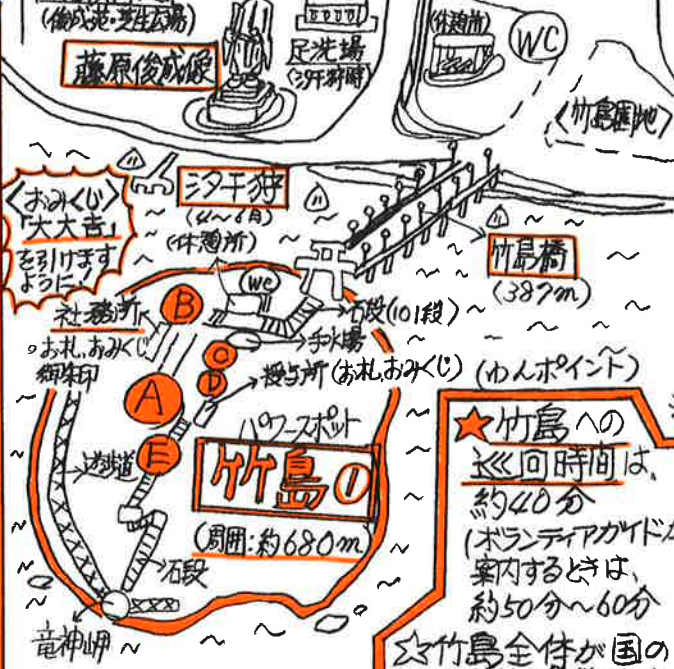 (俊成苑・芝生広場)
藤原俊成像
足洗場
(休憩所)
WC
<竹島園地>
<おみくじ>
「大大吉」
を引けます
ように!
汐干狩
(4～6月)
(休憩所)
WC
竹島橋
(387m)
社務所
お札、おみくじ
御朱印
B
石段(101段)
手水場
C
D
授与所(お札、おみくじ)
A
E
遊歩道
パワースポット
竹島①
(周囲:約680m)
石段
竜神岬
(わんポイント)
★竹島への
巡回時間は、
約40分
(ボランティアガイドが
案内するときは、
約50分～60分
☆竹島全体が国の